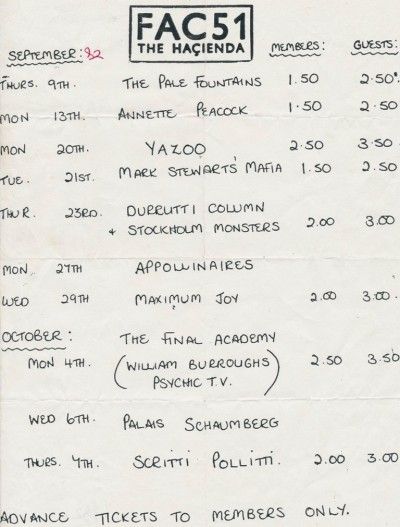 FAC51
THE HAÇIENDA
SEPTEMBER: 82 MEMBERS: GUESTS:
THURS. 9TH. THE PALE FOUNTAINS 1.50 2.50
MON 13TH. ANNETTE PEACOCK 1.50 2.50
MON 20TH. YAZOO 2.50 3.50
TUE. 21ST. MARK STEWARTS' MAFIA 1.50 2.50
THUR. 23RD. DURRUTTI COLUMN
+ STOCKHOLM MONSTERS 2.00 3.00
MON 27TH APPOLLINAIRES
WED 29TH MAXIMUM JOY 2.00 3.00.
OCTOBER: THE FINAL ACADEMY
MON 4TH. (WILLIAM BURROUGHS 2.50 3.50
PSYCHIC T.V.)
WED 6TH. PALAIS SCHAUMBERG
THURS. 7TH. SCRITTI POLLITTI. 2.00 3.00
ADVANCE TICKETS TO MEMBERS ONLY.